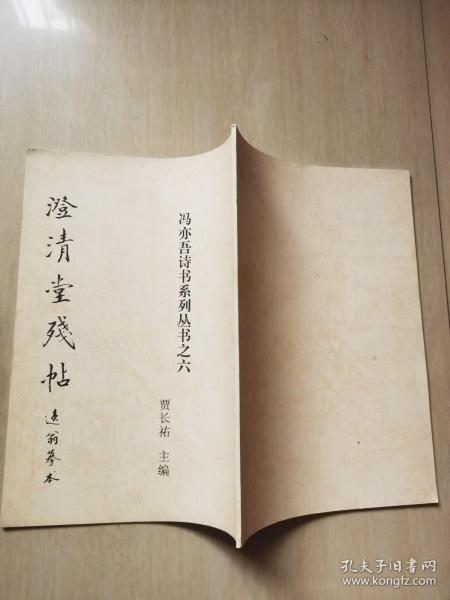 冯亦吾诗书系列丛书之六
贾长祐 主编
澄清堂残帖
迭翁摹本
孔夫子旧书网
www.kongfz.com